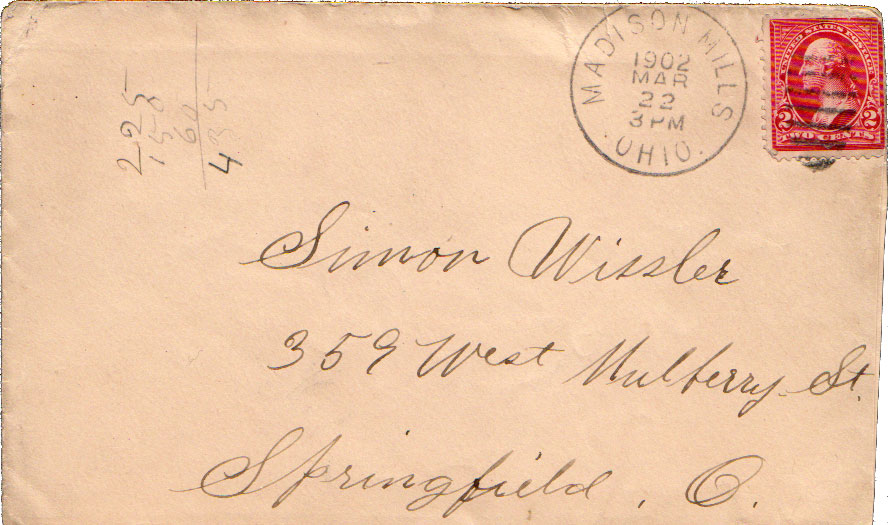 MADISON MILLS
1902
MAR
22
3 PM
OHIO.
UNITED STATES POSTAGE
2 2
TWO CENTS
225
150
60
435
Simon Wissler
359 West Mulberry St.
Springfield, O.